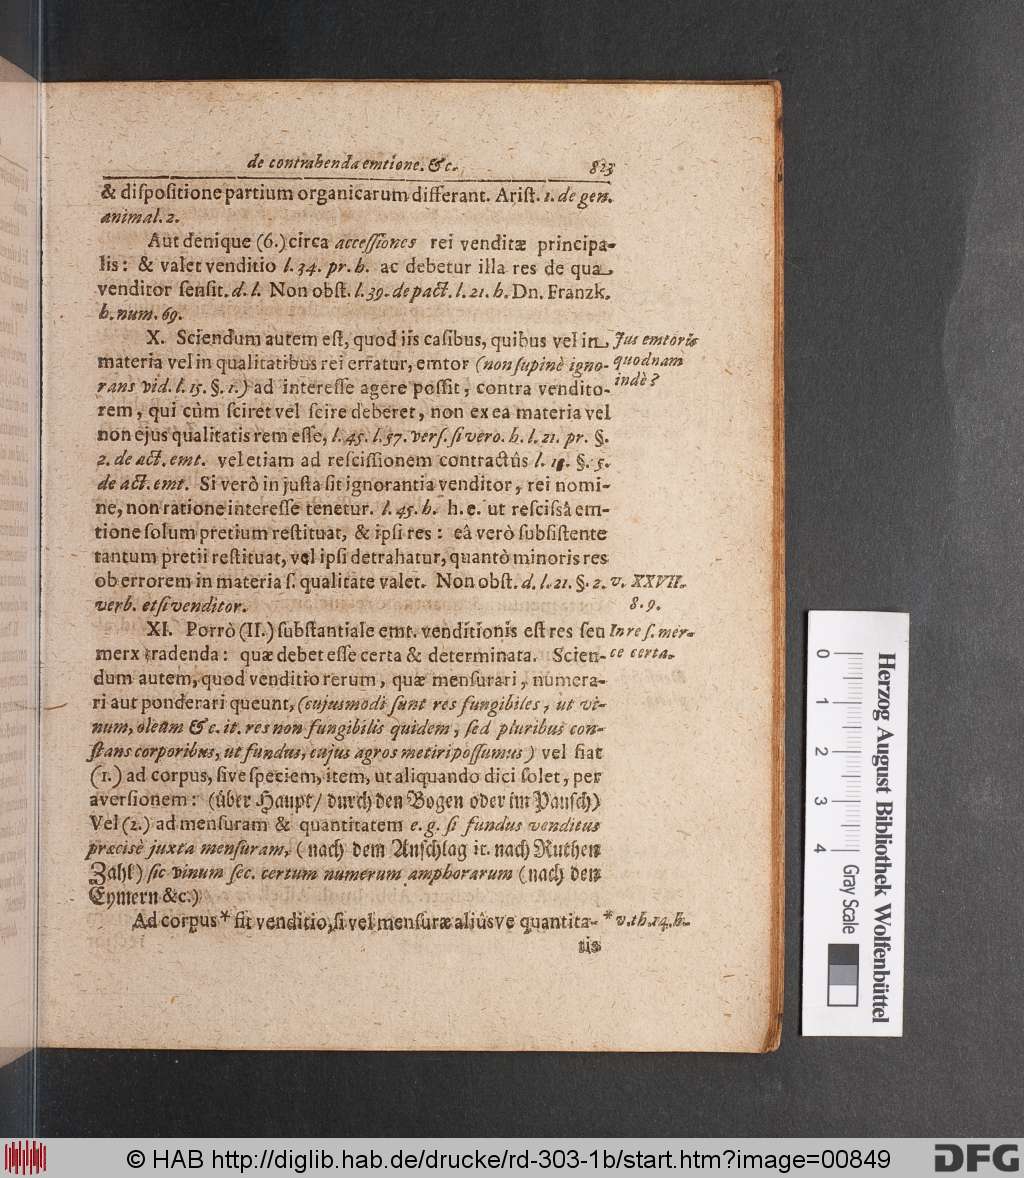 de contrahenda emtione. &c. 823
& dispositione partium organicarum differant. Arist. 1. de gen.
animal. 2.
Aut denique (6.) circa accessiones rei venditæ principa-
lis: & valet venditio l. 34. pr. h. ac debetur illa res de qua
venditor sensit. d. l. Non obst. l. 39. de pact. l. 21. h. Dn. Franzk.
h. num. 69.
X. Sciendum autem est, quod iis casibus, quibus vel in
Jus emtoris
materia vel in qualitatibus rei erratur, emtor (non supinè igno-
quodnam
rans vid. l. 15. §. 1.) ad interesse agere possit, contra vendito-
indè?
rem, qui cùm sciret vel scire deberet, non ex ea materia vel
non ejus qualitatis rem esse, l. 45. l. 57. vers. si vero. h. l. 21. pr. §.
2. de act. emt. vel etiam ad rescissionem contractûs l. 11. §. 5.
de act. emt. Si verò in justa sit ignorantia venditor, rei nomi-
ne, non ratione interesse tenetur. l. 45. h. h. e. ut rescissâ em-
tione solum pretium restituat, & ipsi res: eâ verò subsistente
tantum pretii restituat, vel ipsi detrahatur, quantò minoris res
ob errorem in materia s. qualitate valet. Non obst. d. l. 21. §. 2.
v. XXVII.
verb. etsi venditor.
8. 9.
XI. Porrò (II.) substantiale emt. venditionis est res seu
In re s. mer-
merx tradenda: quæ debet esse certa & determinata. Scien-
ce certa.
dum autem, quod venditio rerum, quæ mensurari, numera-
ri aut ponderari queunt, (cujusmodi sunt res fungibiles, ut vi-
num, oleum &c. it. res non fungibilis quidem, sed pluribus con-
stans corporibus, ut fundus, cujus agros metiri possumus) vel fiat
(1.) ad corpus, sive speciem, item, ut aliquando dici solet, per
aversionem: (über Haupt/ durch den Bogen oder im Pausch)
Vel (2.) ad mensuram & quantitatem e. g. si fundus venditus
præcisè juxta mensuram, (nach dem Anschlag it. nach Ruthen
Zahl) sic vinum sec. certum numerum amphorarum (nach den
Eymern &c.)
Ad corpus* fit venditio, si vel mensuræ aliûsve quantita-
* v. th. 14. h.
tis
0 1 2 3 4
Gray Scale
Herzog August Bibliothek Wolfenbüttel
© HAB http://diglib.hab.de/drucke/rd-303-1b/start.htm?image=00849
DFG